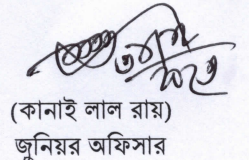 (কানাই লাল রায়)
জুনিয়র অফিসার